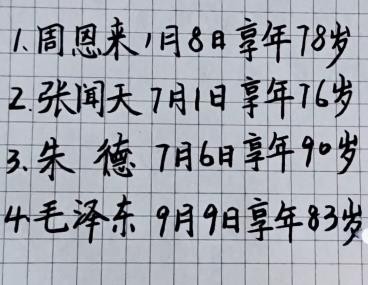 1.周恩来1月8日享年78岁
2.张闻天7月1日享年76岁
3.朱 德 7月6日享年90岁
4.毛泽东 9月9日享年83岁